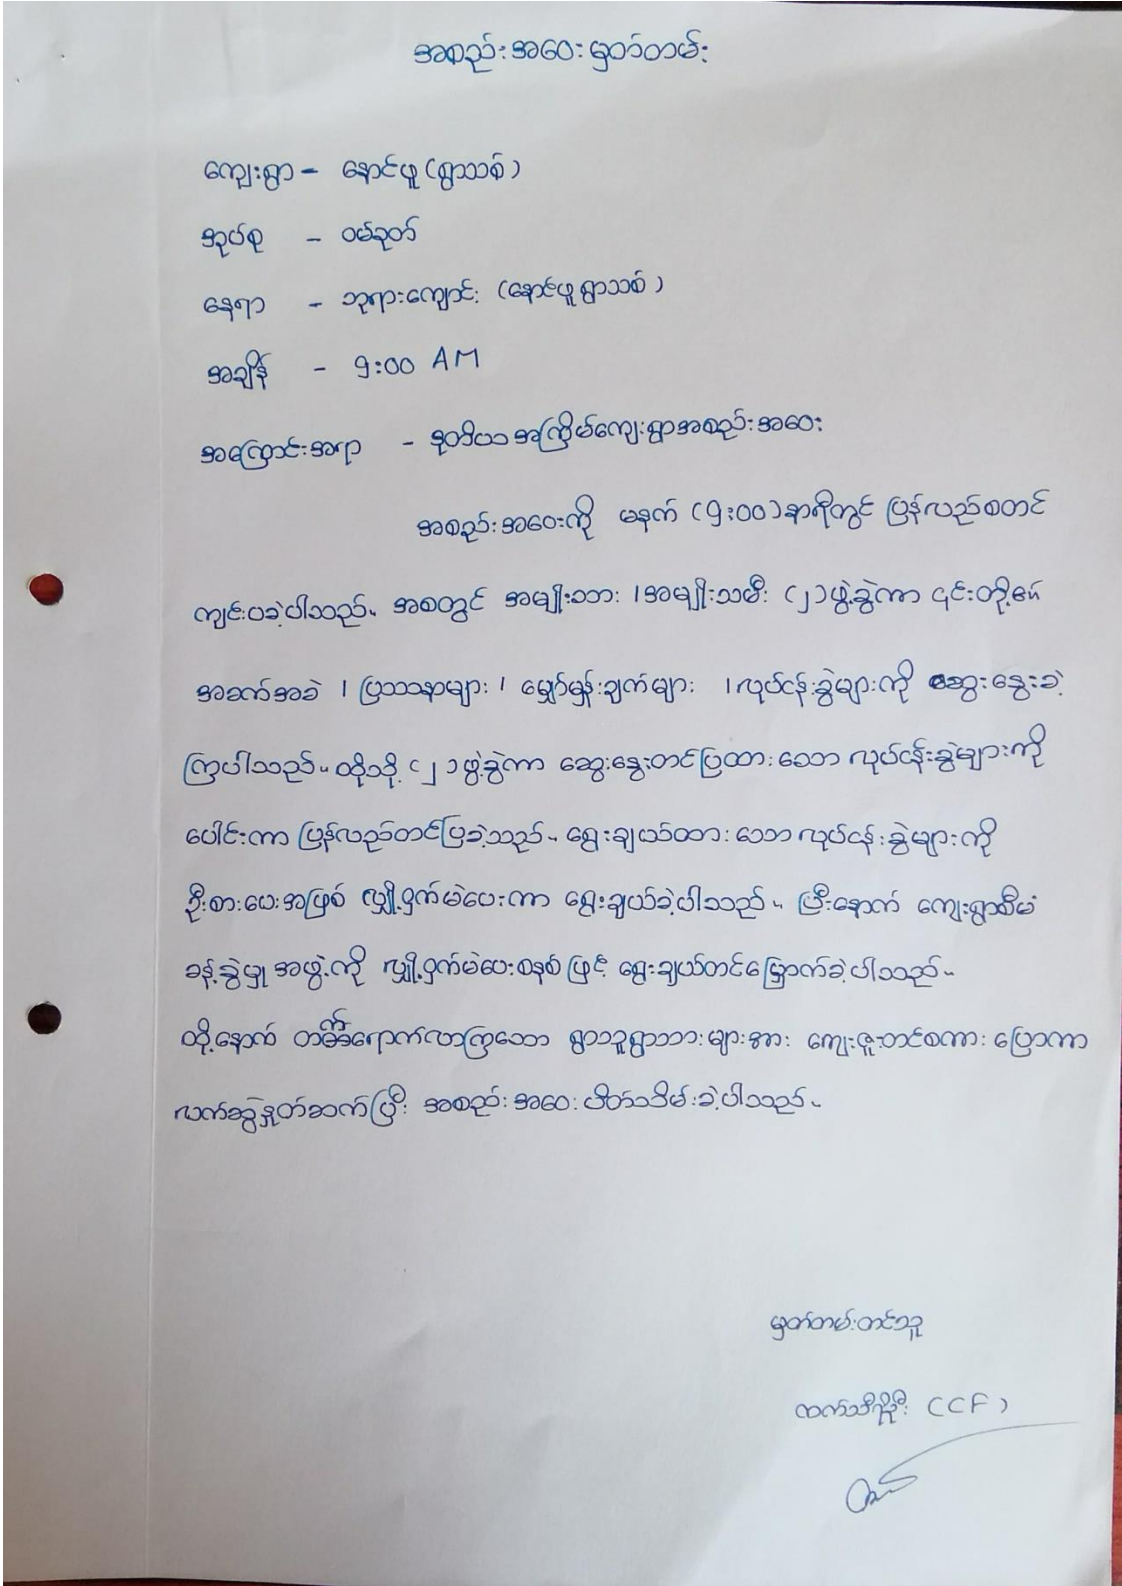 အစည်းအဝေးမှတ်တမ်း
ကျေးရွာ - နောင်ဖူ (ရွာသစ်)
အုပ်စု - ဝမ်ခုတ်
နေရာ - ဘုရားကျောင်း (နောင်ဖူရွာသစ်)
အချိန် - 9:00 AM
အကြောင်းအရာ - ဒုတိယအကြိမ်ကျေးရွာအစည်းအဝေး
အစည်းအဝေးကို မနက် (9:00) နာရီတွင် ပြန်လည်စတင်
ကျင်းပခဲ့ပါသည်။ အစတွင် အမျိုးသား၊ အမျိုးသမီး (၂) ဖွဲ့ခွဲကာ ၎င်းတို့၏
အခက်အခဲ၊ ပြဿနာများ၊ မျှော်မှန်းချက်များ၊ လုပ်ငန်းခွဲများကို ဆွေးနွေးခဲ့
ကြပါသည်။ ထိုသို့ (၂) ဖွဲ့ခွဲကာ ဆွေးနွေးတင်ပြထားသော လုပ်ငန်းခွဲများကို
ပေါင်းကာ ပြန်လည်တင်ပြခဲ့သည်။ ရွေးချယ်ထားသော လုပ်ငန်းခွဲများကို
ဦးစားပေးအဖြစ် လျှို့ဝှက်မဲပေးကာ ရွေးချယ်ခဲ့ပါသည်။ ပြီးနောက် ကျေးရွာစီမံ
ခန့်ခွဲမှု အဖွဲ့ကို လျှို့ဝှက်မဲပေးစနစ်ဖြင့် ရွေးချယ်တင်မြှောက်ခဲ့ပါသည်။
ထို့နောက် တက်ရောက်လာကြသော ရွာသူရွာသားများအား ကျေးဇူးတင်စကား ပြောကာ
လက်ဆွဲနှုတ်ဆက်ပြီး အစည်းအဝေးပိတ်သိမ်းခဲ့ပါသည်။
မှတ်တမ်းတင်သူ
(CCF)